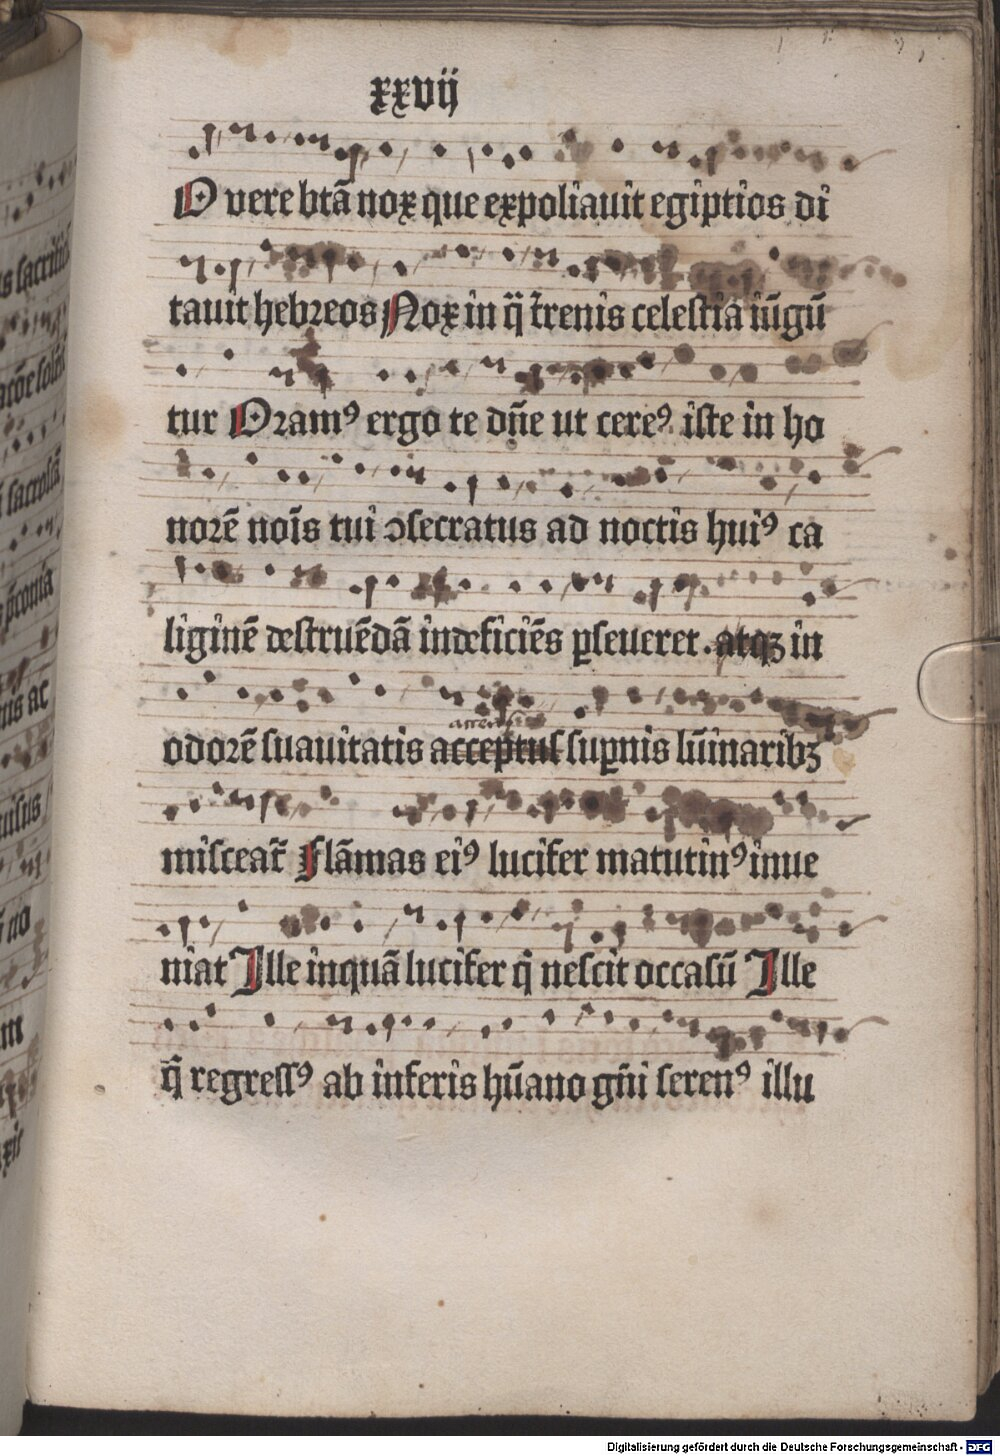 xxvij
O vere btā nox que expoliauit egiptios di
tauit hebreos Nox in q̄ t̄renis celestia iūgū
tur Oramꝰ ergo te dn̄e ut cereꝰ iste in ho
norē noīs tui ↄsecratus ad noctis huiꝰ ca
liginē destruēdā indeficiēs ꝑseueret . atqꝫ in
odorē suauitatis acceptus suꝑnis lūinaribꝫ
misceat᷑ Flāmas eiꝰ lucifer matutinꝰ inue
niat Ille inquā lucifer q̄ nescit occasū Ille
q̄ regressꝰ ab inferis hūano gn̄i serenꝰ illu
Digitalisierung gefördert durch die Deutsche Forschungsgemeinschaft - DFG